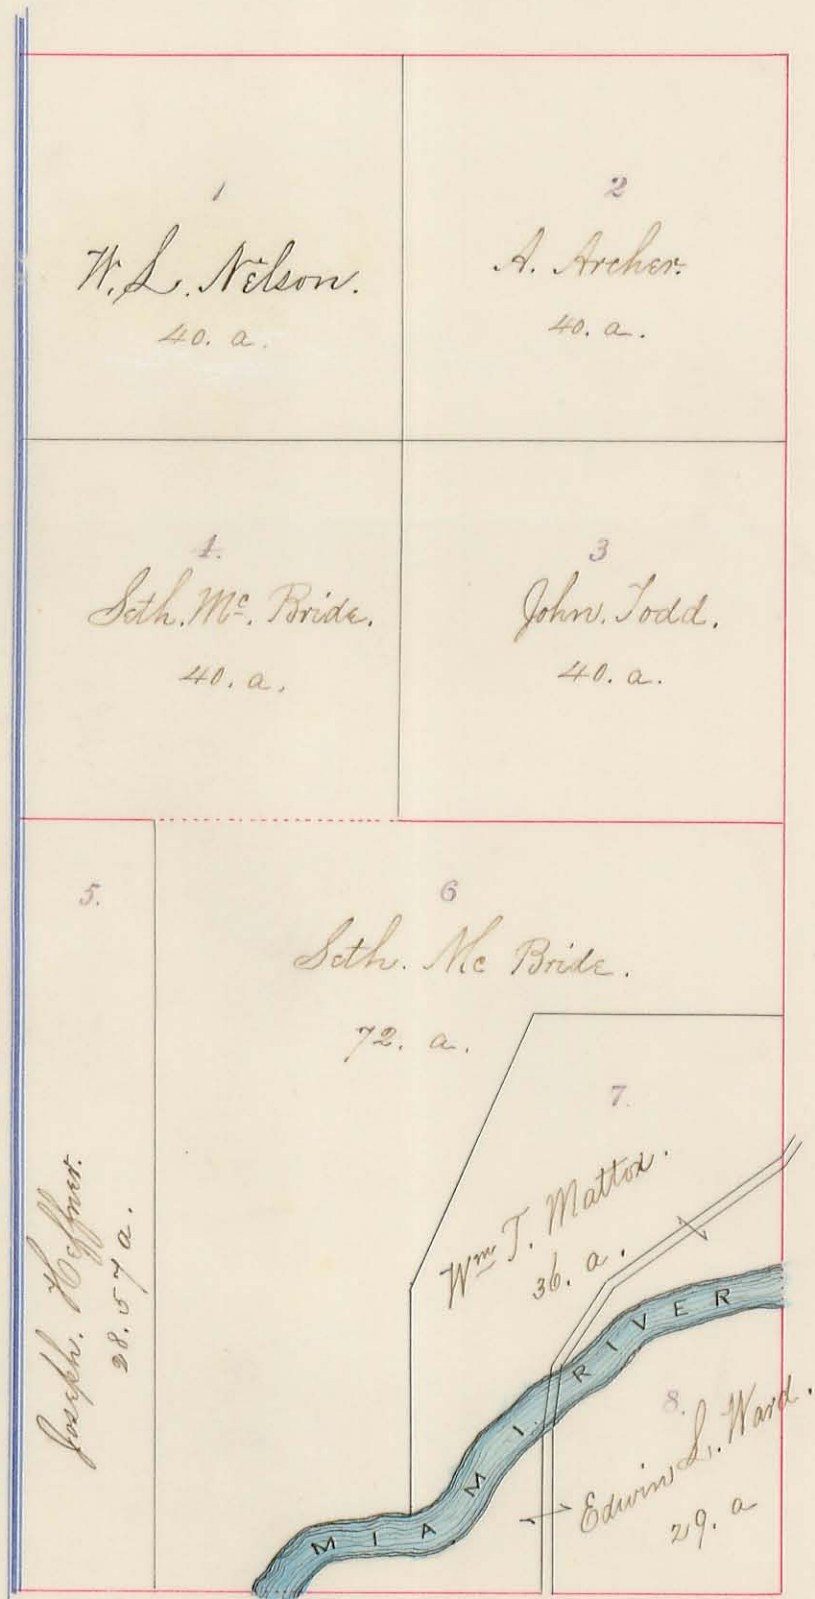 1
W. L. Nelson.
40. a.
2
A. Archer.
40. a.
4.
Seth. Mc. Bride.
40. a.
3
John. Todd.
40. a.
5.
Joseph. Heffner.
28.57 a.
6
Seth. Mc Bride.
72. a.
7.
Wm T. Mattox.
36. a.
MIAMI RIVER
8.
Edwin L. Ward.
29. a